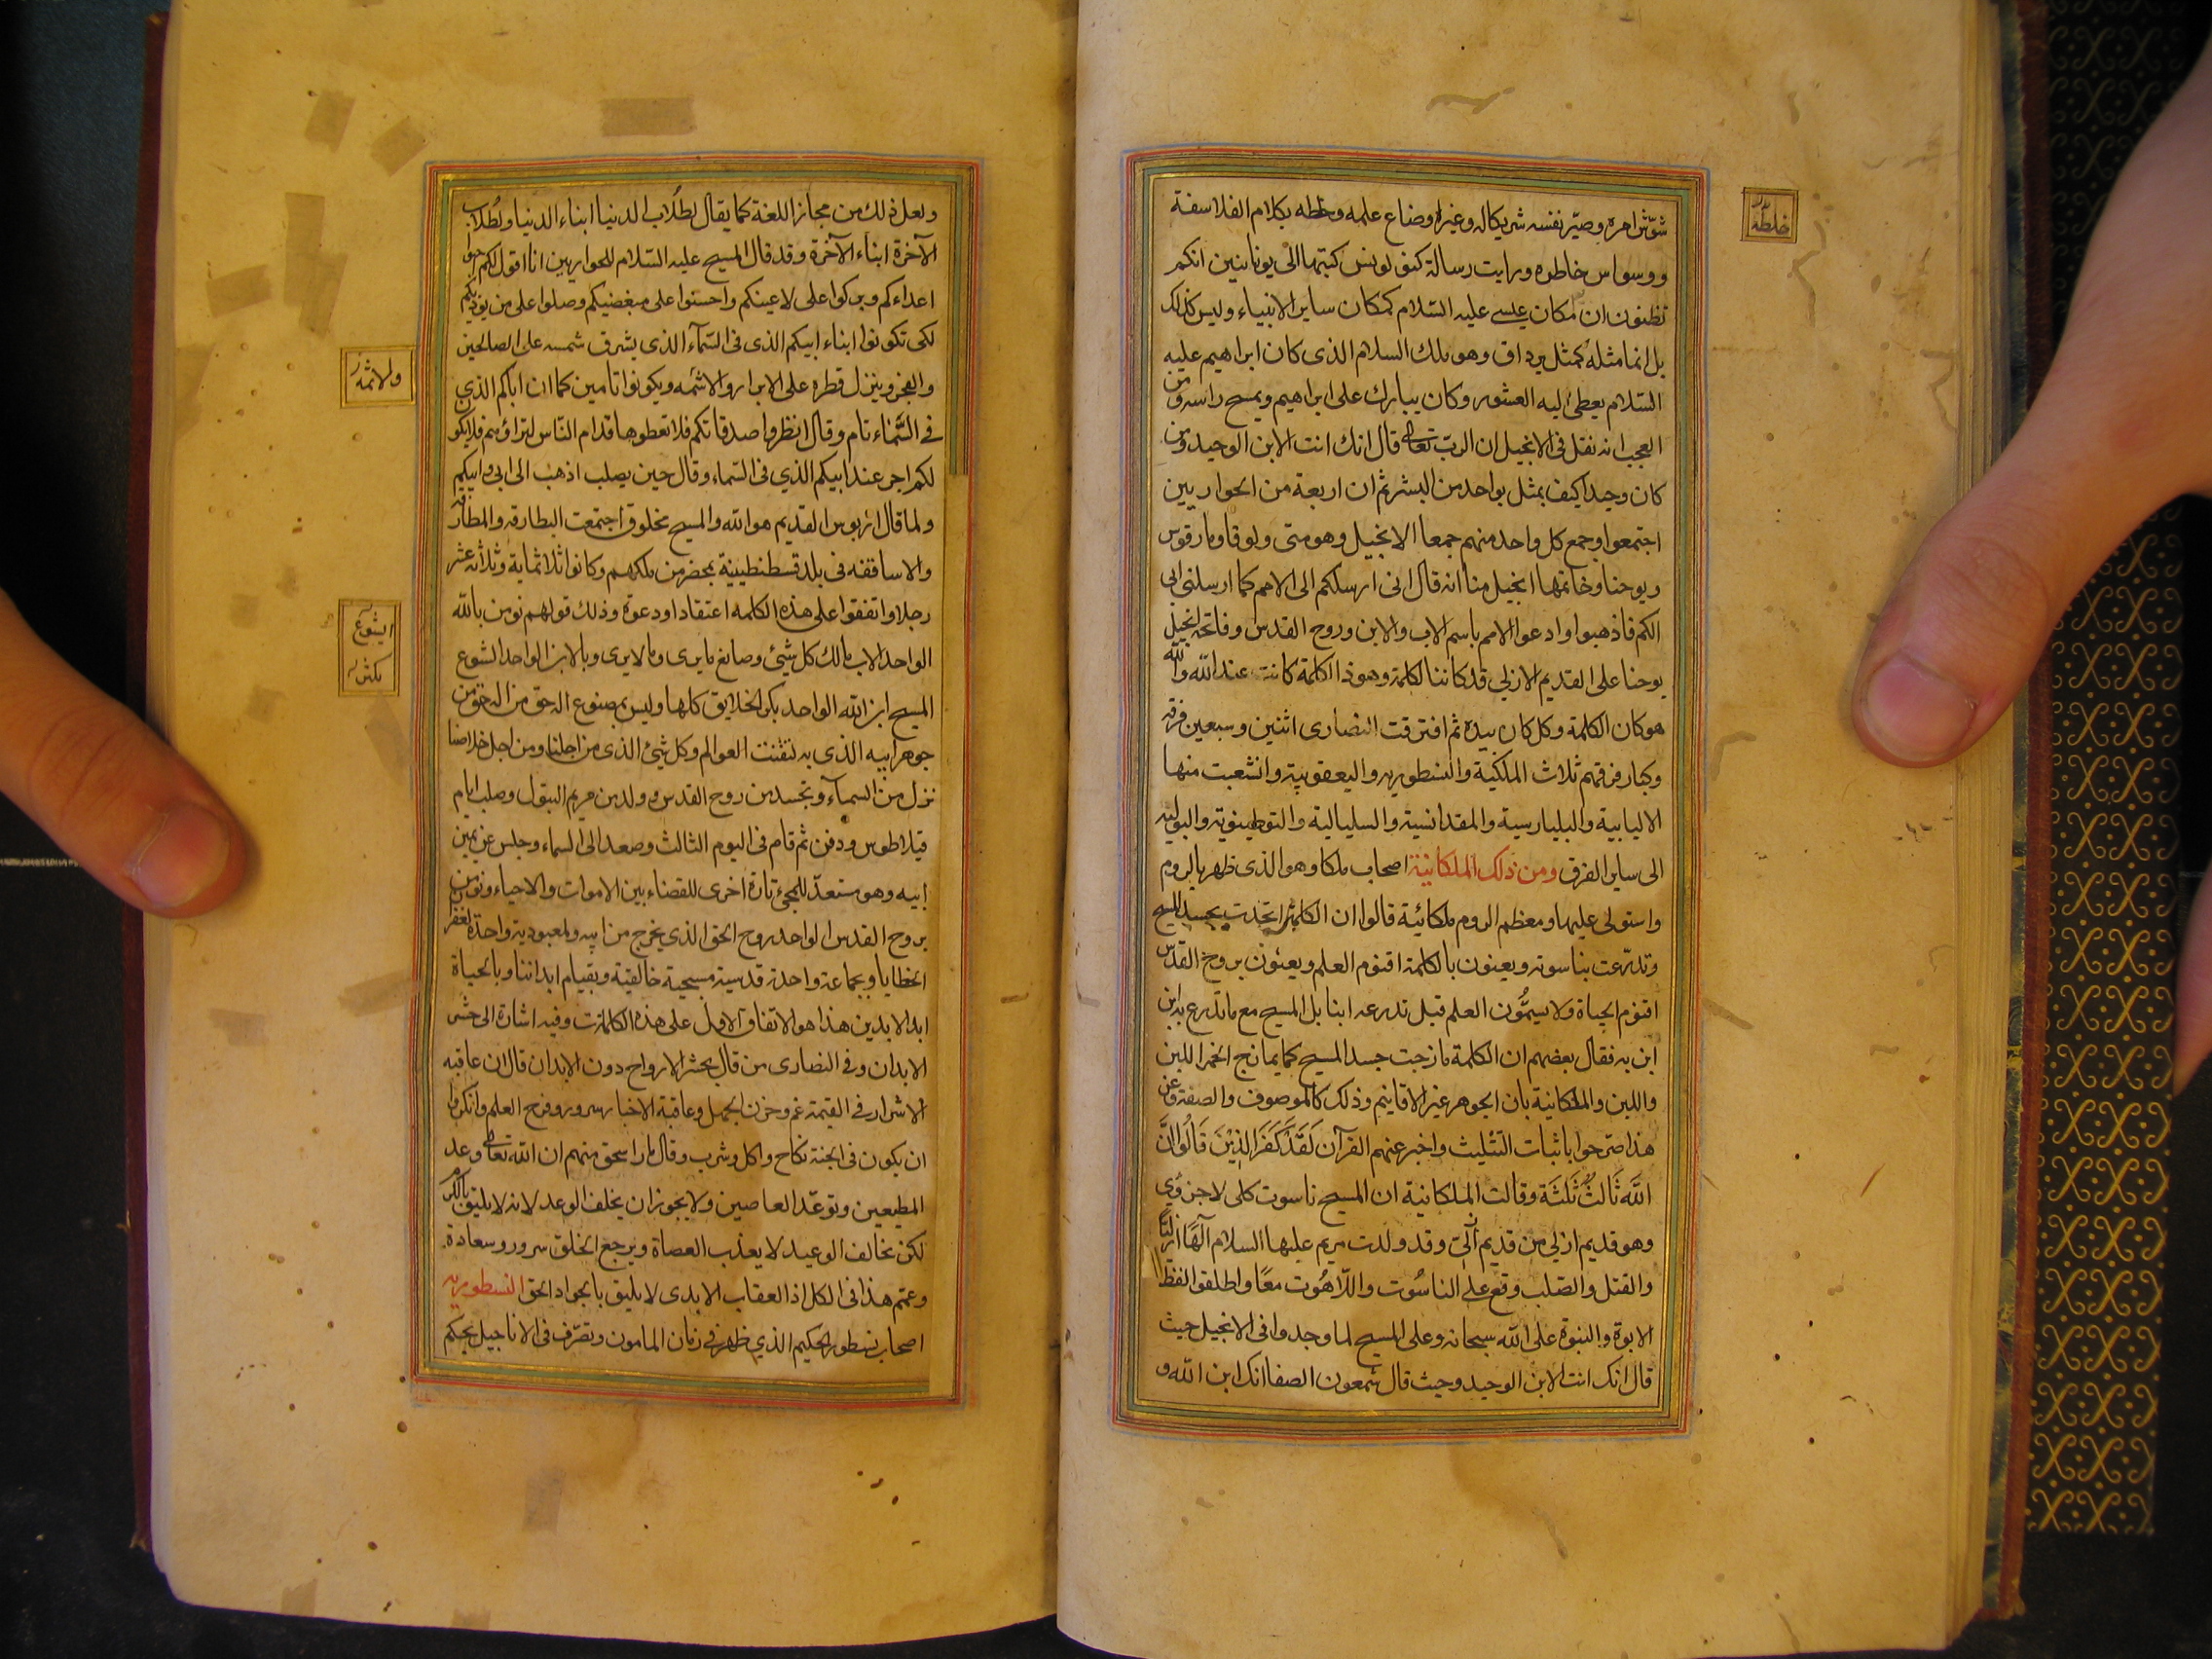 شوّش امره وصيّر نفسه شريكا له وغيّر اوضاع علمه وخلطه بكلام الفلاسفة
خلطه
ووسواس خاطره ورايت رسالة كنف لونس كتبها الى يونانين انكم
تظنون ان مكان عيسى عليه السلام كمكان ساير الانبياء وليس كذلك
بل انما مثله كمثل يرداق وهو ملك السلام الذى كان ابراهيم عليه
السلام يعطى اليه العشور وكان يبارك على ابراهيم ويمسح راسه ومن
العجب انه نقل فى الانجيل ان الرب تعالى قال انك انت الابن الوحيد ومن
كان وحيدا كيف يمثل بواحد من البشر ثم ان اربعة من الحواريين
اجتمعوا وجمع كل واحد منهم جمعا الانجيل وهو متى ولوقا ومارقوس
ويوحنا وخاتمها انجيل منا انه قال انى ارسلكم الى الامم كما ارسلنى ابى
الكم فاذهبوا وادعوا الامم باسم الاب والابن وروح القدس وفاتحة انجيل
يوحنا على القديم الازلى قد كانت الكلمة وهوذا الكلمة كانت عند الله والله
هو كان الكلمة وكل كان بيده ثم افترقت النصارى اثنين وسبعين فرقة
وكبار فرقهم ثلاث الملكية والنسطورية واليعقوبية وانشعبت منها
الاليابية والبليارسية والمقدانسية والسليالية والتوطينوتية والبولية
الى ساير الفرق ومن ذلك الملكانية اصحاب ملكا وهو الذى ظهر بالروم
واستولى عليها ومعظم الروم ملكائية قالوا ان الكلمة اتحدت بجسد المسيح
وتدرّعت بناسوته ويعنون بالكلمة اقنوم العلم ويعنون بروح القدس
اقنوم الحياة ولا يسمّون العلم قبل تدرعه ابنا بل المسيح مع ما تدرع به ابن
ابن به فقال بعضهم ان الكلمة مازجت جسد المسيح كما يمازج الخمر اللبن
واللبن والملكانية بان الجوهر غير الاقانيم وذلك كالموصوف والصفة وعن
هذا صرّحوا باثبات التثليث واخبر عنهم القرآن لَقَدْ كَفَرَ الَّذِيْنَ قَالُوا اِنَّ
اللّٰهَ ثَالثُ ثَلٰثَة وقالت الملكانية ان المسيح ناسوت كلى لا جزوى
وهو قديم ازلى من قديم ازلى وقد ولدت مريم عليها السلام آلهًا ازليًّا
والقتل والصّلب وقع على الناسُوت واللّاهُوت معًا واطلقوا لفظ
الابوة والبنوّة على الله سبحانه وعلى المسيح لما وجدوا فى الانجيل حيث
قال انك انت الابن الوحيد وحيث قال شمعون الصفا انك ابن الله و
ولعل ذلك من مجاز اللغة كما يقال لطلّاب الدنيا ابناء الدنيا ولطُلاب
الآخرة ابناء الآخرة وقد قال المسيح عليه السّلام للحواريين انا اقول لكم احبوا
اعداءكم وبركوا على لاعنيكم واحسنوا على مبغضيكم وصلوا على من يؤذيكم
لكى تكونوا ابناء ابيكم الذى فى السّمآء الذى يشرق شمسه على الصالحين
والفجرة وينزل قطره على الابرار والاثمه ويكونوا تامين كما ان اباكم الذى
والاثمة
فى السَّماء تام وقال انظروا صدقاتكم فلا تعطوها قدام النّاس لتراؤهم فلا يكون
لكم اجر عند ابيكم الذى فى السّماء وقال حين يصلب اذهب الى ابى وابيكم
ولما قال اريوس القديم هو الله والمسيح مخلوق اجتمعت البطارقه والمطارنه
والاساقفه فى بلد قسطنطينية بمحضر من ملكهم وكانوا ثلاثماية وثلاثة عشر
رجلا واتفقوا على هذه الكلمه اعتقادا ودعوة وذلك قولهم نومن بالله
الواحد الاب مالك كل شئ وصانع ما يرى وما لا يرى وبالابن الواحد الشوع
ايشوع
المسيح ابن الله الواحد بكر الخلايق كلها وليس بمصنوع اله حق من اله حق من
بكر
جوهر ابيه الذى به تتقنت العوالم وكل شئ الذى من اجلنا ومن اجل خلاصنا
نزل من السمآء وتجسد من روح القدس وولد من مريم البتول وصلب ايام
فيلاطوس ودفن ثم قام فى اليوم الثالث وصعد الى السماء وجلس عن يمين
ابيه وهو مستعدّ للمجئ تارة اخرى للقضاء بين الاموات والاحياء ونومن
بروح القدس الواحد روح الحق الذى يخرج من ابيه ولمعبودية واحدة لغفران
الخطايا وبجماعة واحدة قدسية مسيحية خالقية وبقيام ابداننا وبالحياة
ابد الابدين هذا هو الاتفاق الاول على هذه الكلمات وفيه اشارة الى حشر
الابدان وفى النصارى من قال بحشر الارواح دون الابدان قال ان عاقبة
الاشرار فى القيمة غم وحزن الجهل وعاقبة الاخيار سرور وفرح العلم وانكروا
ان يكون فى الجنة نكاح واكل وشرب وقال مار اسحق منهم ان الله تعالى وعد
المطيعين وتوعّد العاصين ولا يجوز ان يخلف الوعد لانه لا يليق بالكرم
لكن يخالف الوعيد لا يعذب العصاة ويرجع الخلق سرور وسعادة
وعمّم هذا فى الكل اذ العقاب الابدى لا يليق بالجواد الحق النسطوريه
اصحاب نسطور الحكيم الذى ظهر فى زمان المامون وتصرّف فى الاناجيل بحكم